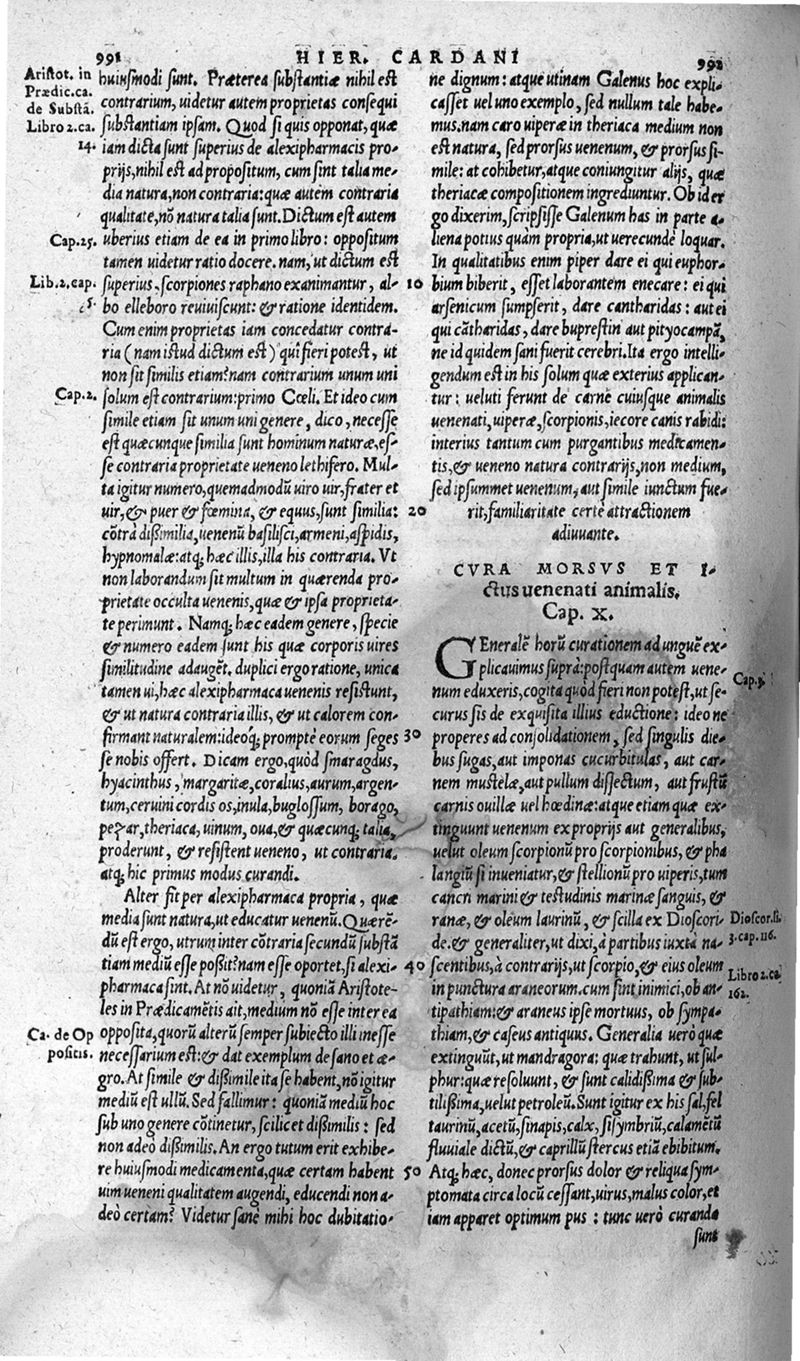 991
HIER. CARDANI
992
Aristot. in
Prædic.ca.
de Substã.
Libro 2.ca.
14.
huiusmodi sunt. Præterea substantiæ nihil est
contrarium, uidetur autem proprietas consequi
substantiam ipsam. Quod si quis opponat, quæ
iam dicta sunt superius de alexipharmacis pro-
prijs, nihil est ad propositum, cum sint talia me-
dia natura, non contraria: quæ autem contraria
qualitate, nõ natura talia sunt. Dictum est autem
Cap.25.
uberius etiam de ea in primo libro: oppositum
tamen uidetur ratio docere. nam, ut dictum est
Lib.2.cap.
5.
superius, scorpiones raphano exanimantur, al-
bo elleboro reuiuiscunt: & ratione identidem.
Cum enim proprietas iam concedatur contra-
ria (nam istud dictum est) quî fieri potest, ut
non sit similis etiam? nam contrarium unum uni
Cap.2.
solum est contrarium: primo Cœli. Et ideo cum
simile etiam sit unum uni genere, dico, necesse
est quæcunque similia sunt hominum naturæ, es-
se contraria proprietate ueneno lethifero. Mul-
ta igitur numero, quemadmodũ uiro uir, frater et
uir, & puer & fœmina, & equus, sunt similia:
cõtrà dißimilia, uenenũ basilisci, armeni, aspidis,
hypnomalæ: atq; hæc illis, illa his contraria. Vt
non laborandum sit multum in quærenda pro-
prietate occulta uenenis, quæ & ipsa proprieta-
te perimunt. Namq; hæc eadem genere, specie
& numero eadem sunt his quæ corporis uires
similitudine adaugẽt. duplici ergo ratione, unica
tamen ui, hæc alexipharmaca uenenis resistunt,
& ut natura contraria illis, & ut calorem con-
firmant naturalem: ideoq; promptè eorum seges
se nobis offert. Dicam ergo, quòd smaragdus,
hyacinthus, margaritæ, coralius, aurum, argen-
tum, ceruini cordis os, inula, buglossum, borago,
pezar, theriaca, uinum, oua, & quæcunq; talia,
proderunt, & resistent ueneno, ut contraria.
atq; hic primus modus curandi.
Alter fit per alexipharmaca propria, quæ
media sunt natura, ut educatur uenenũ. Quærẽ-
dũ est ergo, utrum inter cõtraria secundũ substã
tiam mediũ esse poßit? nam esse oportet, si alexi-
pharmaca sint. At nõ uidetur, quoniã Aristote-
les in Prædicamẽtis ait, medium nõ esse inter ea
Ca. de Op
positis.
opposita, quorũ alterũ semper subiecto illi inesse
necessarium est: & dat exemplum de sano et æ-
gro. At simile & dißimile ita se habent, nõ igitur
mediũ est ullũ. Sed fallimur: quoniã mediũ hoc
sub uno genere cõtinetur, scilicet dißimilis: sed
non adeò dißimilis. An ergo tutum erit exhibe-
re huiusmodi medicamenta, quæ certam habent
uim ueneni qualitatem augendi, educendi non a-
deò certam? Videtur sanè mihi hoc dubitatio-
ne dignum: atque utinam Galenus hoc expli-
casset uel uno exemplo, sed nullum tale habe-
mus. nam caro uiperæ in theriaca medium non
est natura, sed prorsus uenenum, & prorsus si-
mile: at cohibetur, atque coniungitur alijs, quæ
theriacæ compositionem ingrediuntur. Ob id er
go dixerim, scripsisse Galenum has in parte a-
liena potius quàm propria, ut uerecundè loquar.
In qualitatibus enim piper dare ei qui euphor-
10 bium biberit, esset laborantem enecare: ei qui
arsenicum sumpserit, dare cantharidas: aut ei
qui cãtharidas, dare buprestin aut pityocampã,
ne id quidem sani fuerit cerebri. Ita ergo intelli-
gendum est in his solum quæ exterius applican-
tur: ueluti ferunt de carne cuiusque animalis
uenenati, uiperæ, scorpionis, iecore canis rabidi:
interius tantum cum purgantibus medicamen-
tis, & ueneno natura contrarijs, non medium,
sed ipsummet uenenum, aut simile iunctum fue-
20 rit, familiaritate certè attractionem
adiuuante.
CVRA MORSVS ET I-
ctus uenenati animalis.
Cap. X.
GEneralẽ horũ curationem ad unguẽ ex-
plicauimus suprà: postquam autem uene-
Cap.3.
num eduxeris, cogita quòd fieri non potest, ut se-
curus sis de exquisita illius eductione: ideo ne
30 properes ad consolidationem, sed singulis die-
bus sugas, aut imponas cucurbitulas, aut car-
nem mustelæ, aut pullum dissectum, aut frustũ
carnis ouillæ uel hœdinæ: atque etiam quæ ex-
tinguunt uenenum ex proprijs aut generalibus,
uelut oleum scorpionũ pro scorpionibus, & pha
langiũ si inueniatur, & stellionũ pro uiperis, tum
cancri marini & testudinis marinæ sanguis, &
ranæ, & oleum laurinũ, & scilla ex Dioscori-
Dioscor.li.
3.cap.116.
de. & generaliter, ut dixi, à partibus iuxta na-
40 scentibus, à contrarijs, ut scorpio, & eius oleum
Libro 2.ca.
162.
in punctura araneorum. cum sint inimici, ob an-
tipathiam: & araneus ipse mortuus, ob sympa-
thiam, & caseus antiquus. Generalia uerò quæ
extinguũt, ut mandragora: quæ trahunt, ut sul-
phur: quæ resoluunt, & sunt calidißima & sub-
tilißima, uelut petroleũ. Sunt igitur ex his sal, fel
taurinũ, acetũ, sinapis, calx, sisymbriũ, calamẽtũ
fluuiale dictũ, & caprillũ stercus etiã ebibitum.
50 Atq; hæc, donec prorsus dolor & reliqua sym-
ptomata circa locũ cessant, uirus, malus color, et
iam apparet optimum pus: tunc uerò curanda
sunt